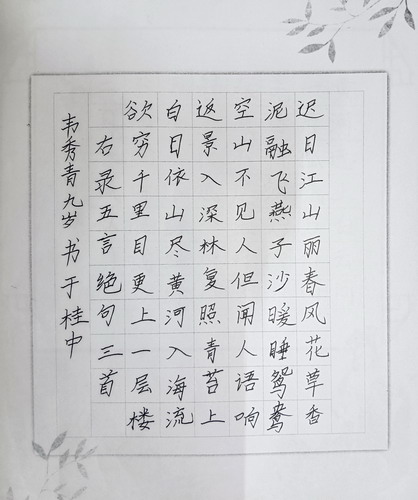 迟日江山丽春风花草香
泥融飞燕子沙暖睡鸳鸯
空山不见人但闻人语响
返景入深林复照青苔上
白日依山尽黄河入海流
欲穷千里目更上一层楼
右录五言绝句三首
韦秀青九岁书于桂中